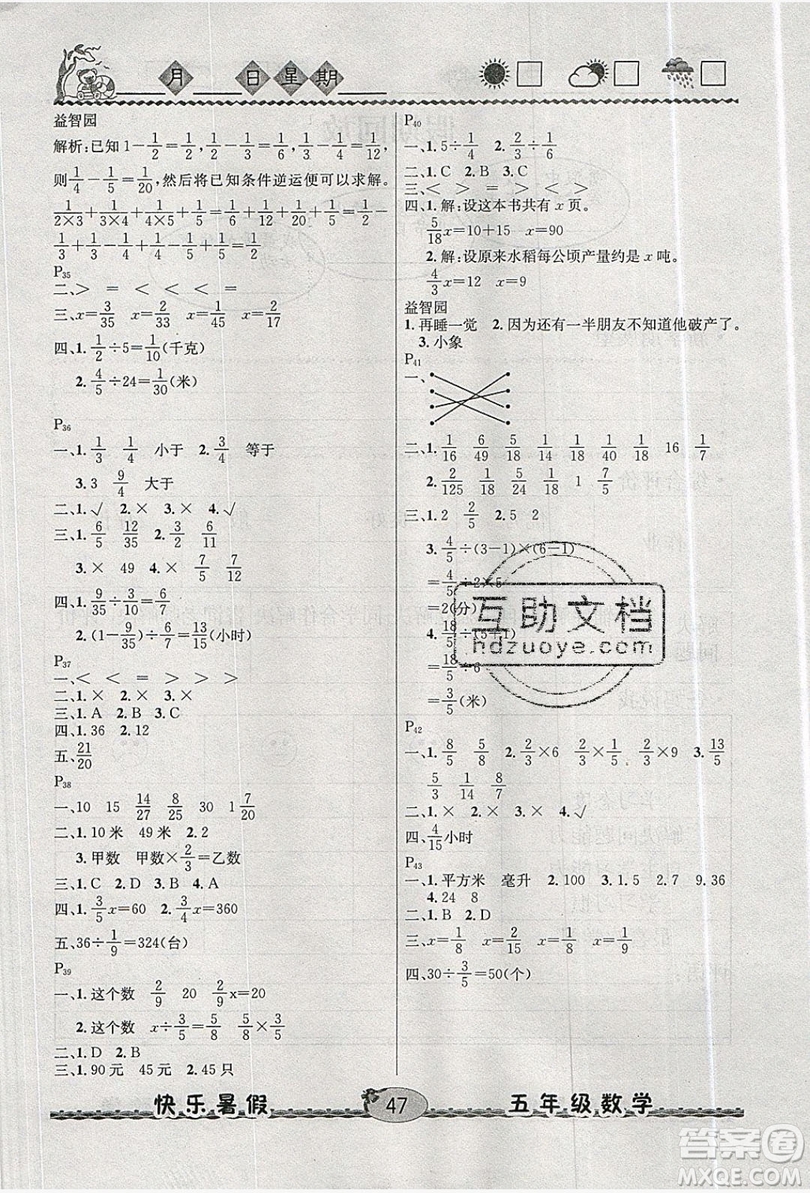 月 日 星 期
益智园
解析:已知1-1/2=1/2,1/2-1/3=1/6,1/3-1/4=1/12,
则1/4-1/5=1/20,然后将已知条件逆运便可以求解。
1/(2×3)+1/(3×4)+1/(4×5)+1/(5×6)=1/2-1/3+
1/3-1/4+1/4-1/5+1/5-1/6=1/3
P35
二、> = < < < =
三、x=3/35 x=2/33 x=10 x=2/17
四、1.1/2÷5=1/10(千克)
2.4/5÷24=1/30(米)
P36
一、1.1/3 1/4 小于 2.3/4 等于
3.3 9/4 大于
二、1.√ 2.× 3.× 4.√
三、1.6/5 12/35 2.3/2 6/11
3.× 49 4.× 7/5
四、1.9/35÷3/10=6/7
2.(1-9/35)÷6/7=13/15(小时)
P37
一、< < = > > >
二、1.× 2.× 3.×
三、1.A 2.B 3.C
四、1.36 2.12
五、21/20
P38
一、10 15 14/27 8/25 30 1 7/20
二、1.10米 49米 2.2
3.甲数 甲数×2/3=乙数
三、1.C 2.D 3.B 4.A
四、1.3/5x=60 2.4/5x=360
五、36÷1/9=324(台)
P39
一、1.这个数 2/9 20 2/9x=20
2.这个数 x÷3/5=5/8 5/8×3/5
二、1.D 2.B
三、1.90元 45元 2.45只
P40
一、1.5÷1/4 2.3/5÷1/6
二、1.C 2.B 3.C
三、< > = <
四、1.解:设这本书共有x页。
5/18x=10+15 x=90
2.解:设原来水稻每公顷产量约是x吨。
4/3x=12 x=9
益智园
1.再睡一觉 2.因为还有一半朋友不知道他破产了。
3.小象
P41
一、
二、1.1/16 6/49 5/18 1/14 1/40 1/18 16 1/7
2.2/125 1/18 5/14 1/18 7/5
三、1.2 2/5 2.5 2
3.4/5÷(3-1)×(6-1)
=4/5÷2×5
=2(分)
=3/5(米)
P42
一、1.8/5 5/8 2.2/3×6 2/3×2/3×9 3.13/5
5/3 3/14 8/9
二、1.× 2.× 3.× 4.√
四、4/15小时
P43
一、1.平方米 毫升 2.100 3.1.5 2.7 9.36
4.24 8
二、1.B 2.D
三、x=1/8 x=1/2 x=1/9 x=3/8
四、30÷3/5=50(个)
互助文档
hdzuoye.com
快乐暑假 47 五年级数学
答案圈
MXQE.COM